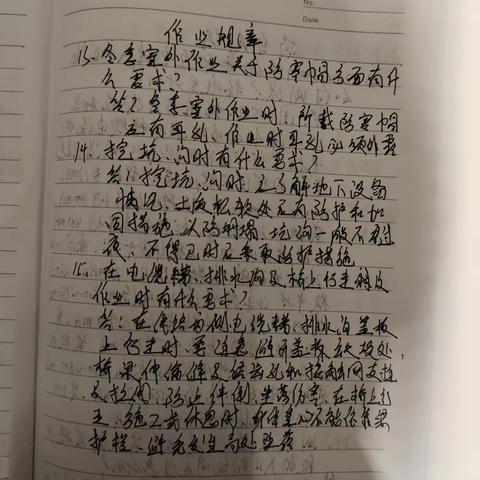 No.
Date
作业规章
13、冬季室外作业关于防寒帽方面有什
么要求?
答: 冬季室外作业时, 所戴防寒帽
应有耳孔, 作业时耳孔必须外露
14、挖坑、沟时有什么要求?
答: 挖坑、沟时, 应了解地下设备
情况, 土质松软处应有防护和加
固措施, 以防坍塌, 坑沟一般不过
夜, 不得已时应采取防护措施
15、在电缆槽、排水沟及桥上行走
作业时有什么要求?
答: 在线路两侧电缆槽、排水沟盖板
上行走时, 要注意避开盖板缺损处,
桥梁伸缩缝及
防止绊倒、坠落伤害, 在桥上行
走、施工或休息时, 身体重心不能
护栏, 避免发生高处坠落